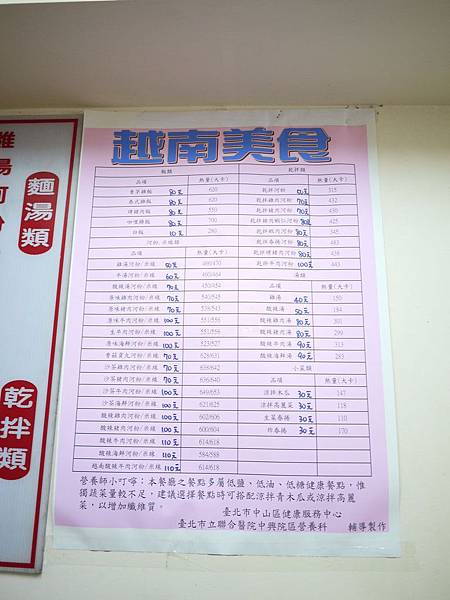 越南美食
飯類
品項 熱量(大卡)
香茅雞飯 80元 620
泰式雞飯 80元 620
烤豬肉飯 80元 550
咖哩雞飯 80元 700
白飯 10元 280
河粉/米線類
品項 熱量(大卡)
雞湯河粉/米線 50元
牛湯河粉/米線 60元 460/464
酸辣湯河粉/米線 70元 450/454
原味雞肉河粉/米線 70元 540/545
原味豬肉河粉/米線 70元
原味牛肉河粉/米線 100元 551/556
生牛肉河粉/米線 100元 551/556
原味海鮮河粉/米線 100元 523/527
香菇貢丸河粉/米線 70元 628/631
沙茶雞肉河粉/米線 70元 638/642
沙茶豬肉河粉/米線 70元 636/640
沙茶牛肉河粉/米線 100元 649/653
沙茶海鮮河粉/米線 100元 621/625
酸辣雞肉河粉/米線 100元 602/606
酸辣豬肉河粉/米線 100元 600/610
酸辣牛肉河粉/米線 110元 614/618
酸辣海鮮河粉/米線 110元 584/588
越南酸辣牛肉河粉/米線 110元 614/618
乾拌類
品項 熱量(大卡)
乾拌河粉 50元 315
乾拌雞肉河粉 70元 432
乾拌豬肉河粉 70元 430
80元 425
乾拌蝦肉河粉 80元 483
乾拌春捲河粉 80元 485
乾拌烤豬肉河粉 80元 438
乾拌牛肉河粉 100元 443
湯類
品項 熱量(大卡)
雞湯 40元 150
酸辣湯 50元 184
酸辣雞肉湯 80元 301
酸辣豬肉湯 80元 299
酸辣牛肉湯 90元 313
酸辣海鮮湯 90元 283
小菜類
品項 熱量(大卡)
涼拌木瓜 30元 147
涼拌高麗菜 30元 118
生菜春捲 30元 110
炸春捲 30元 170
營養師小叮嚀：本餐廳之餐點多屬低鹽、低油、低糖健康餐點，惟
獨蔬菜量較不足，建議選擇餐點時可搭配涼拌青木瓜或涼拌高麗
菜，以增加纖維質。
臺北市中山區健康服務中心
臺北市立聯合醫院中興院區營養科 輔導製作
麵湯類
乾拌類